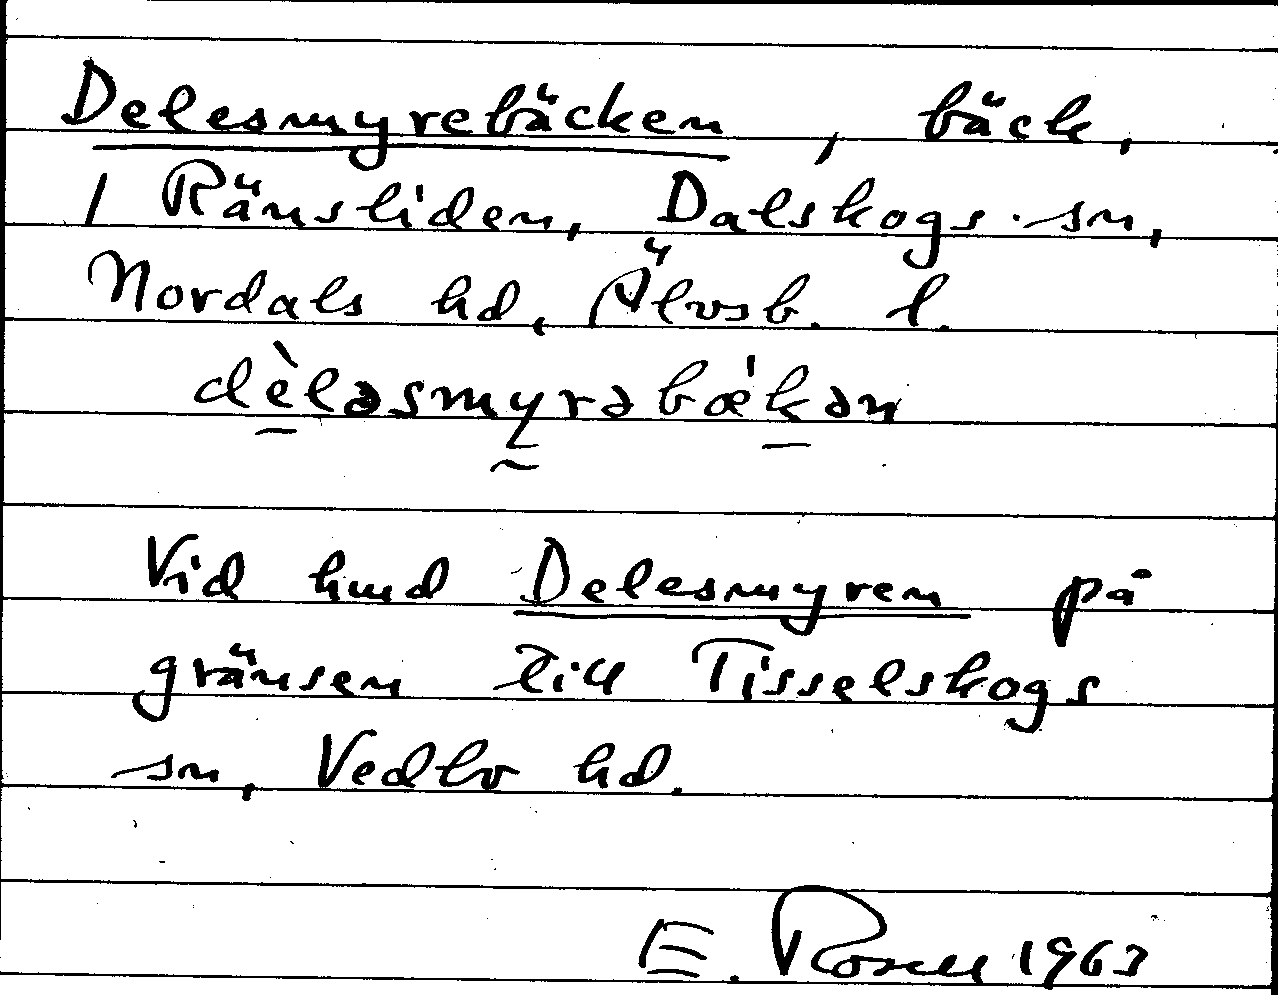 Delesmyrebäcken, bäck,
I Ränsliden, Dalskogs sn,
Nordals hd, Älvsb. l.
dèləsmyrəbækən
Vid hmd Delesmyren på
gränsen till Tisselskogs
sn, Vedbo hd.
E. Rosell 1963